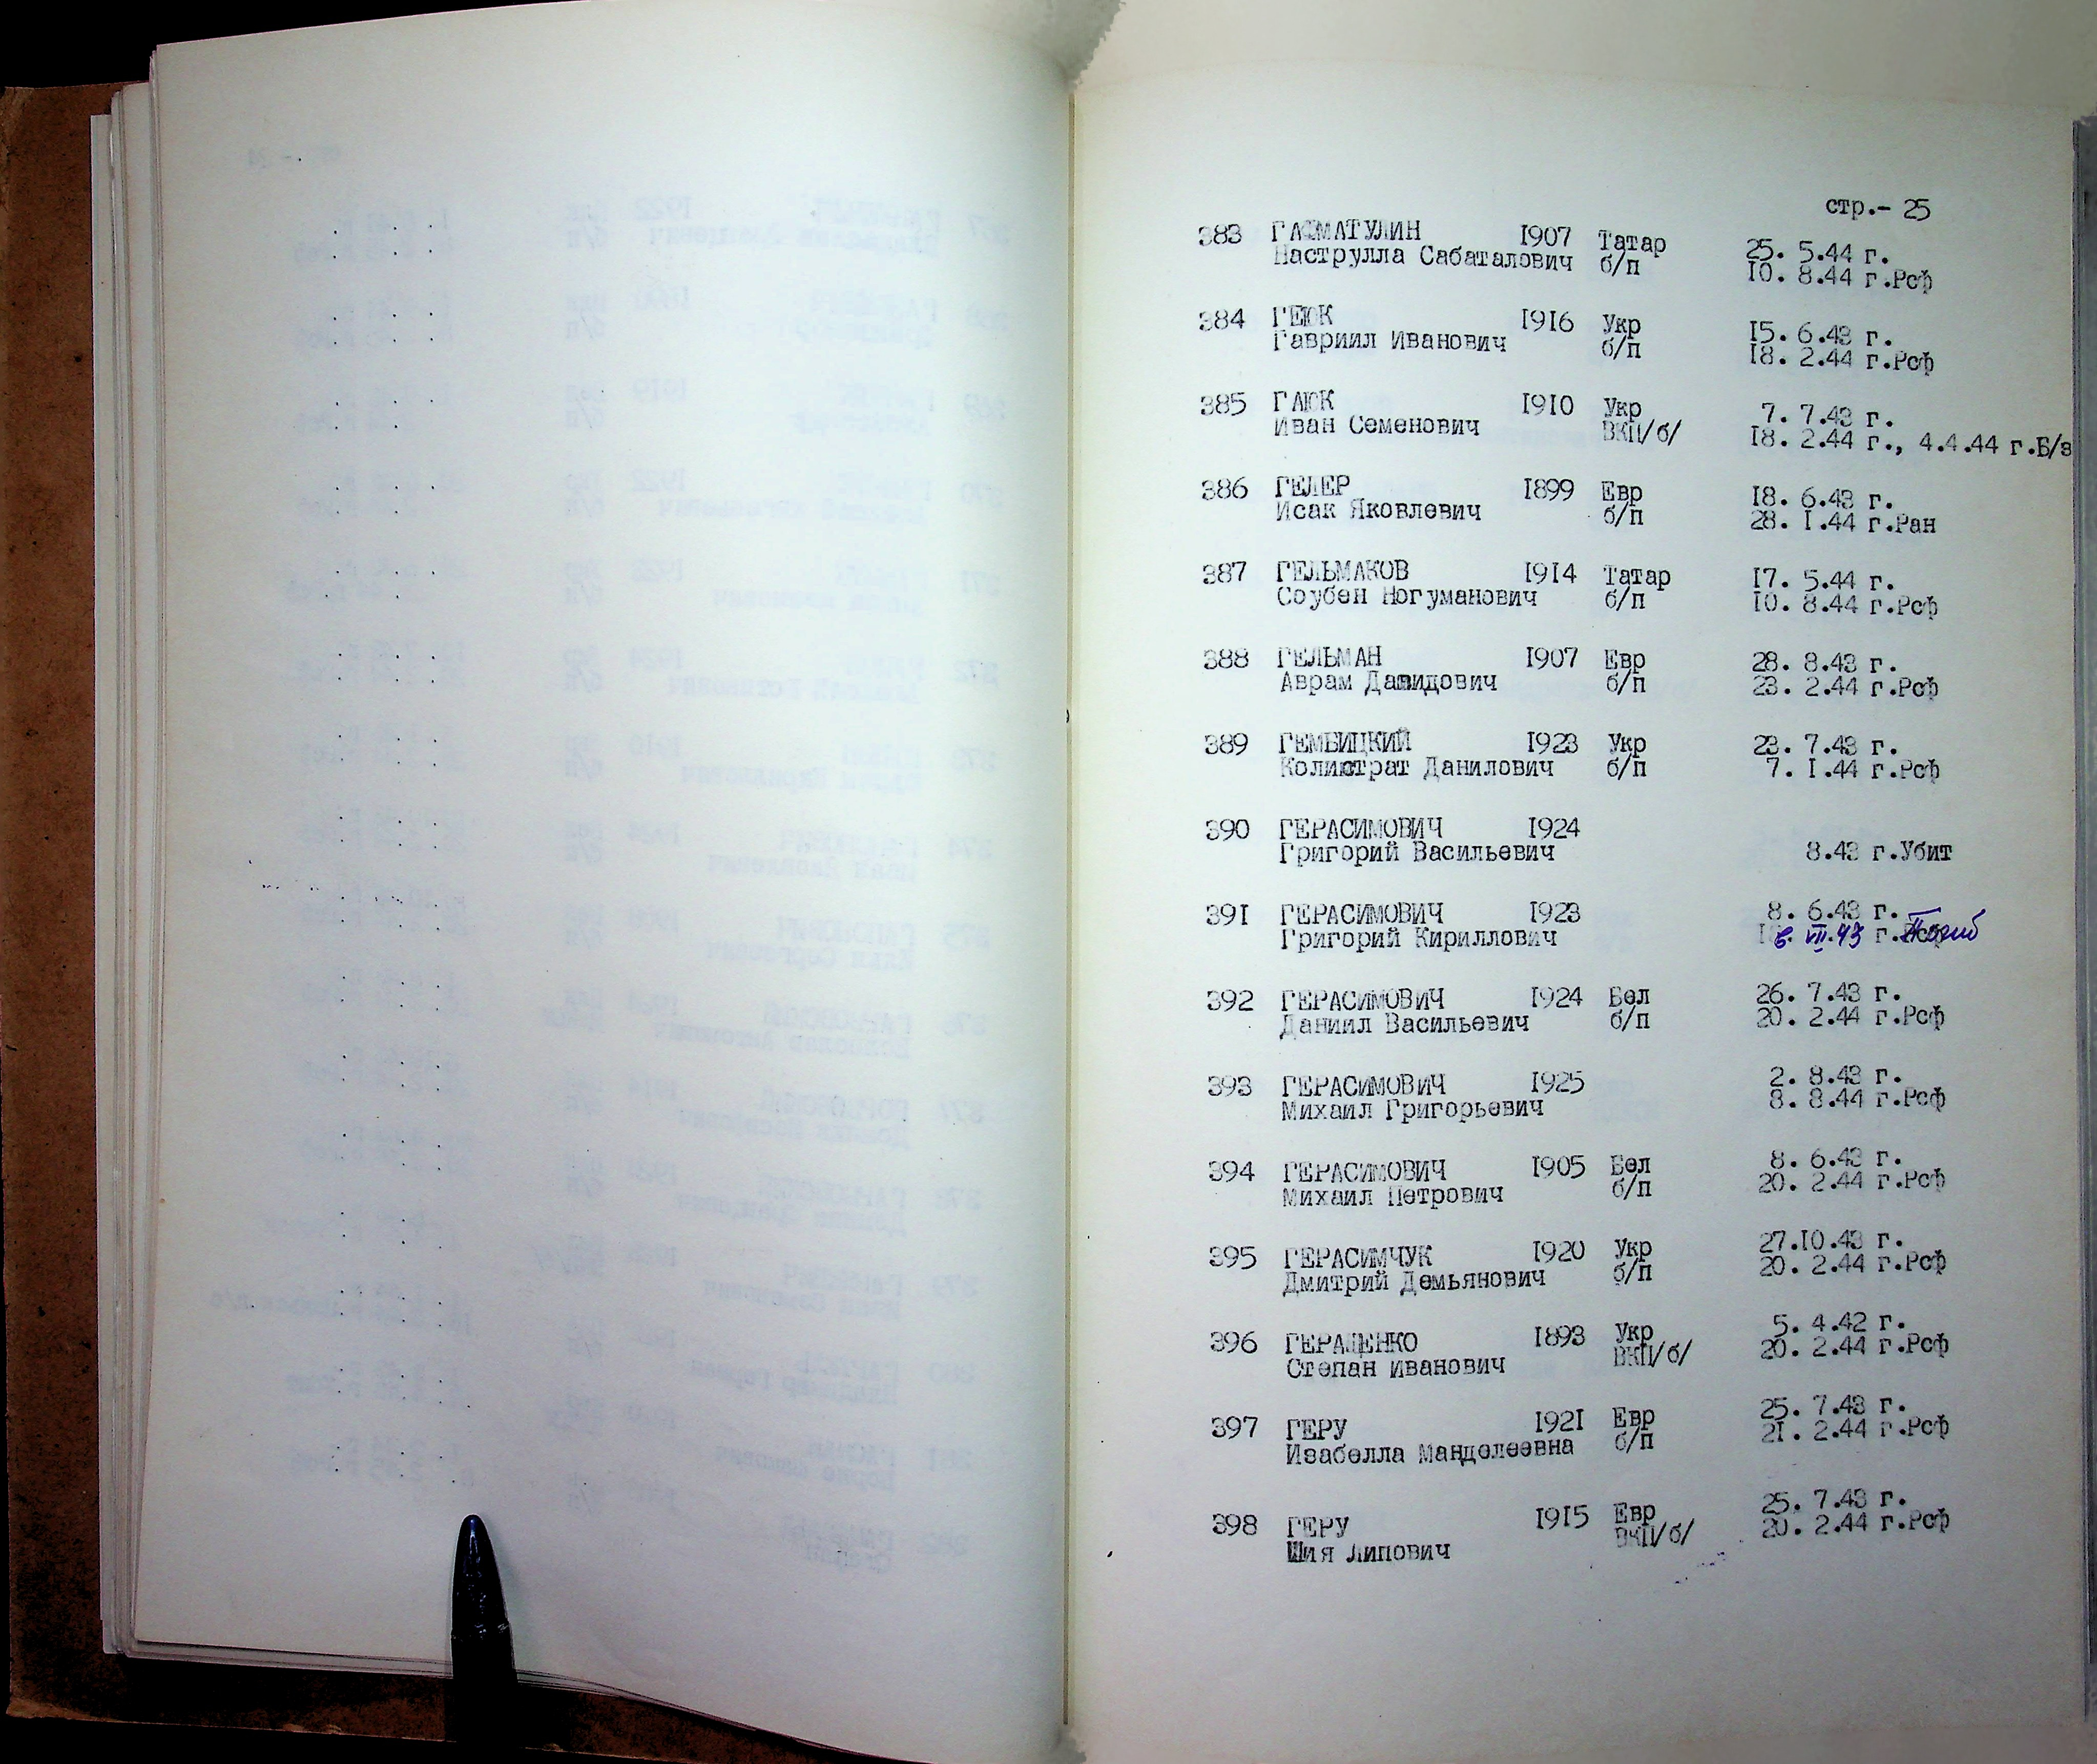 стр.- 25
383 ГАСМАТУЛИН 1907 Татар 25. 5.44 г.
Наструлла Сабаталович б/п 10. 8.44 г.Рсф
384 ГЕЮК 1916 Укр 15. 6.43 г.
Гавриил Иванович б/п 18. 2.44 г.Рсф
385 ГАЮК 1910 Укр 7. 7.43 г.
Иван Семенович ВКП/б/ 18. 2.44 г., 4.4.44 г.Б/з
386 ГЕЛЕР 1899 Евр 18. 6.43 г.
Исак Яковлевич б/п 28. 1.44 г.Ран
387 ГЕЛЬМАКОВ 1914 Татар 17. 5.44 г.
Соубен Ногуманович б/п 10. 8.44 г.Рсф
388 ГЕЛЬМАН 1907 Евр 28. 8.43 г.
Аврам Давидович б/п 23. 2.44 г.Рсф
389 ГЕМБИЦКИЙ 1923 Укр 23. 7.43 г.
Колистрат Данилович б/п 7. 1.44 г.Рсф
390 ГЕРАСИМОВИЧ 1924
Григорий Васильевич 8.43 г.Убит
391 ГЕРАСИМОВИЧ 1923 8. 6.43 г.
Григорий Кириллович 6. VII.43 г. Погиб
392 ГЕРАСИМОВИЧ 1924 Бел 26. 7.43 г.
Даниил Васильевич б/п 20. 2.44 г.Рсф
393 ГЕРАСИМОВИЧ 1925 2. 8.43 г.
Михаил Григорьевич 8. 8.44 г.Рсф
394 ГЕРАСИМОВИЧ 1905 Бел 8. 6.43 г.
Михаил Петрович б/п 20. 2.44 г.Рсф
395 ГЕРАСИМЧУК 1920 Укр 27.10.43 г.
Дмитрий Демьянович б/п 20. 2.44 г.Рсф
396 ГЕРАЩЕНКО 1893 Укр 5. 4.42 г.
Степан Иванович ВКП/б/ 20. 2.44 г.Рсф
397 ГЕРУ 1921 Евр 25. 7.43 г.
Изабелла Манделеевна б/п 21. 2.44 г.Рсф
398 ГЕРУ 1915 Евр 25. 7.43 г.
Шия Липович ВКП/б/ 20. 2.44 г.Рсф